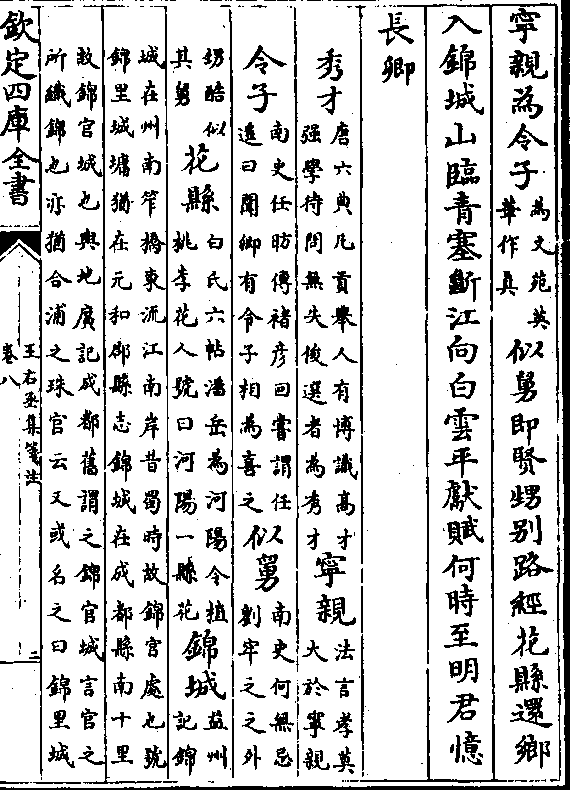 寧親為令子為文苑英華作真似舅即賢甥别路經花縣還鄉
入錦城山臨青塞斷江向白雲平獻賦何時至明君憶
長卿
秀才唐六典凡貢舉人有博識高才强學待問無失俊選者為秀才寧親法言孝莫大於寧親
令子南史任昉傳褚彦回嘗謂任遥曰聞卿有令子相為喜之似舅南史何無忌劉牢之之外
甥酷似其舅花縣白氏六帖潘岳為河陽令植桃李花人號曰河陽一縣花錦城益州記錦
城在州南笮橋東流江南岸昔蜀時故錦宫處也號錦里城墉猶在元和郡縣志錦城在成都縣南十里
故錦官城也輿地廣記成都舊謂之錦官城言官之所織錦也亦猶合浦之珠官云又或名之曰錦里城
欽定四庫全書
王右丞集箋注
卷八
二